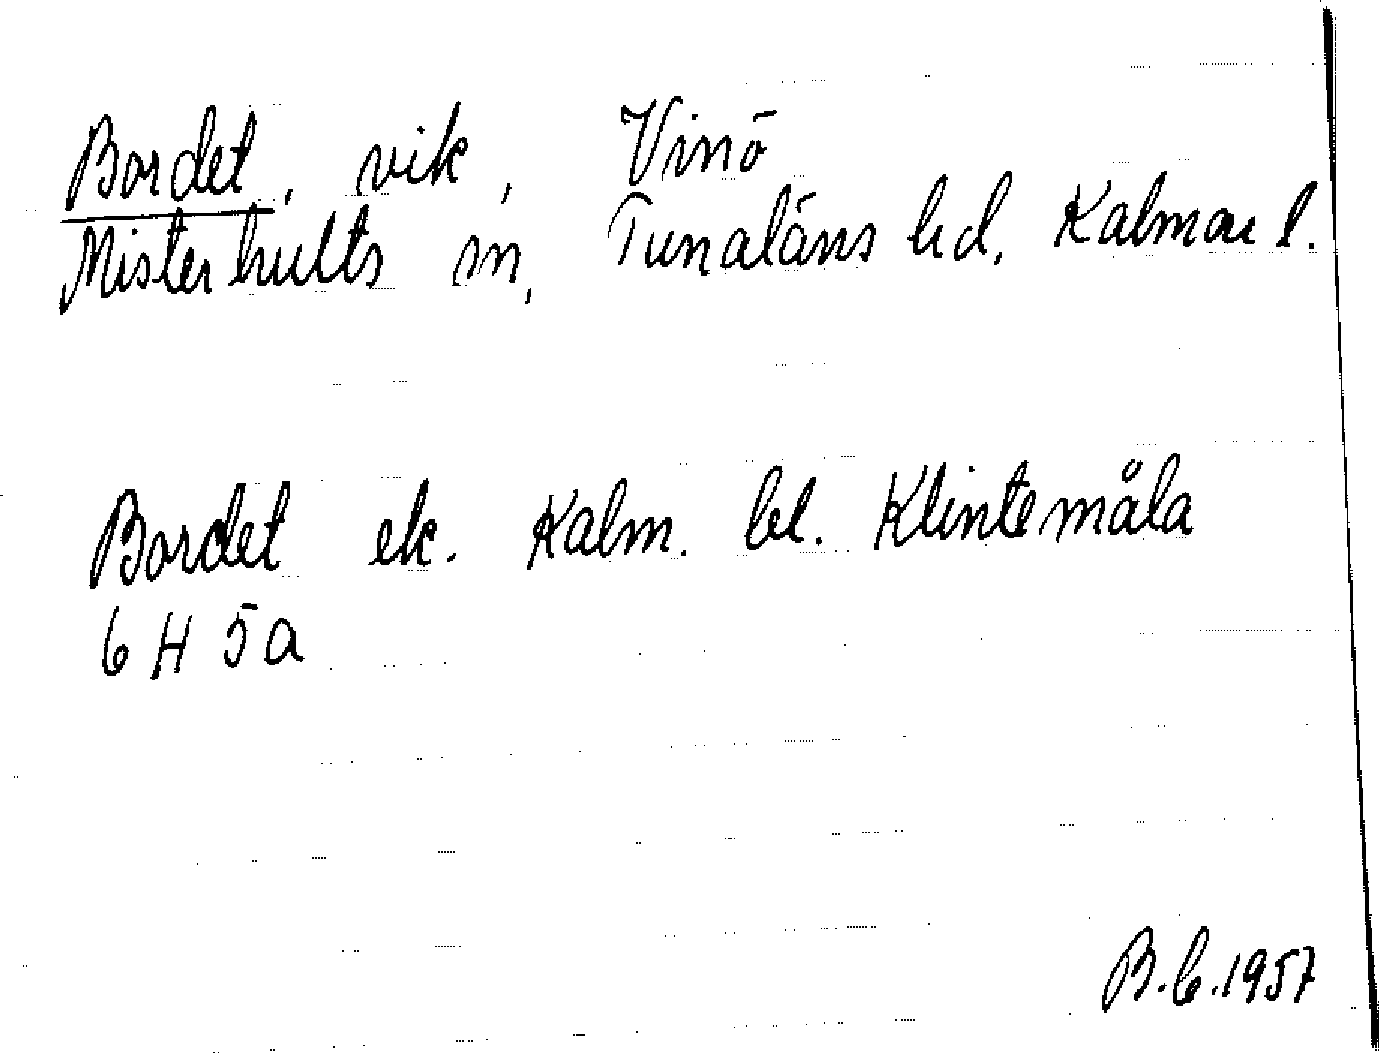 Bordet, vik, Vinö
Misterhults sn, Tunaläns hd, Kalmar l.
Bordet ek. Kalm. bl. Klintemåla
6 H 5a
B.C.1957